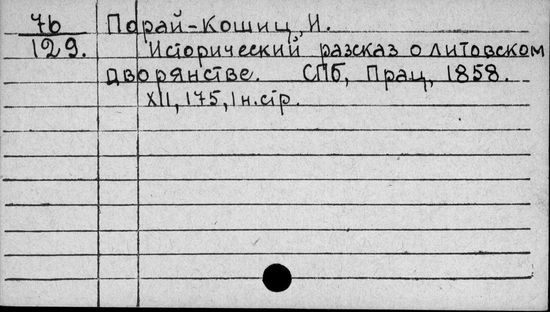 7б Порай-Кошиц, И.
129. Исторический разсказ о литовском
дворянстве. СПб, Прац, 1858.
XII, 175, 1 н.стр.